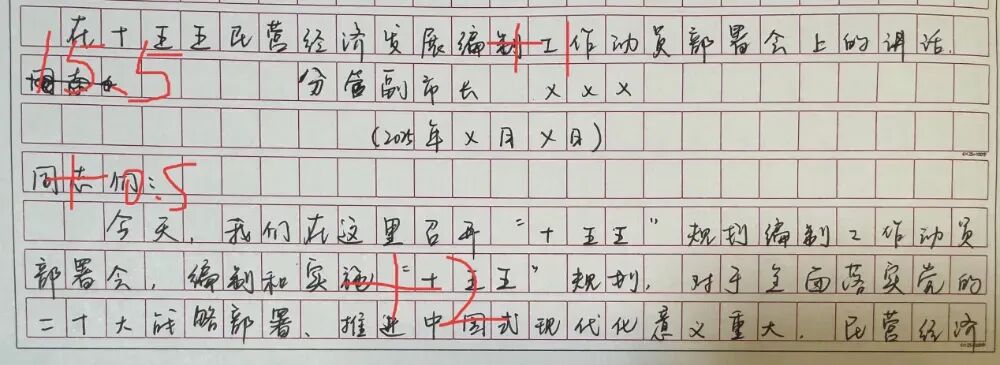 在十五五民营经济发展编制工作动员部署会上的讲话.
+1
15.5
分管副市长 XXX
(2025年X月X日)
同志们:
+0.5
今天,我们在这里召开"十五五"规划编制工作动员
部署会,编制和实施"十五五"规划,对于全面落实党的
+2
二十大战略部署、推进中国式现代化意义重大.民营经济